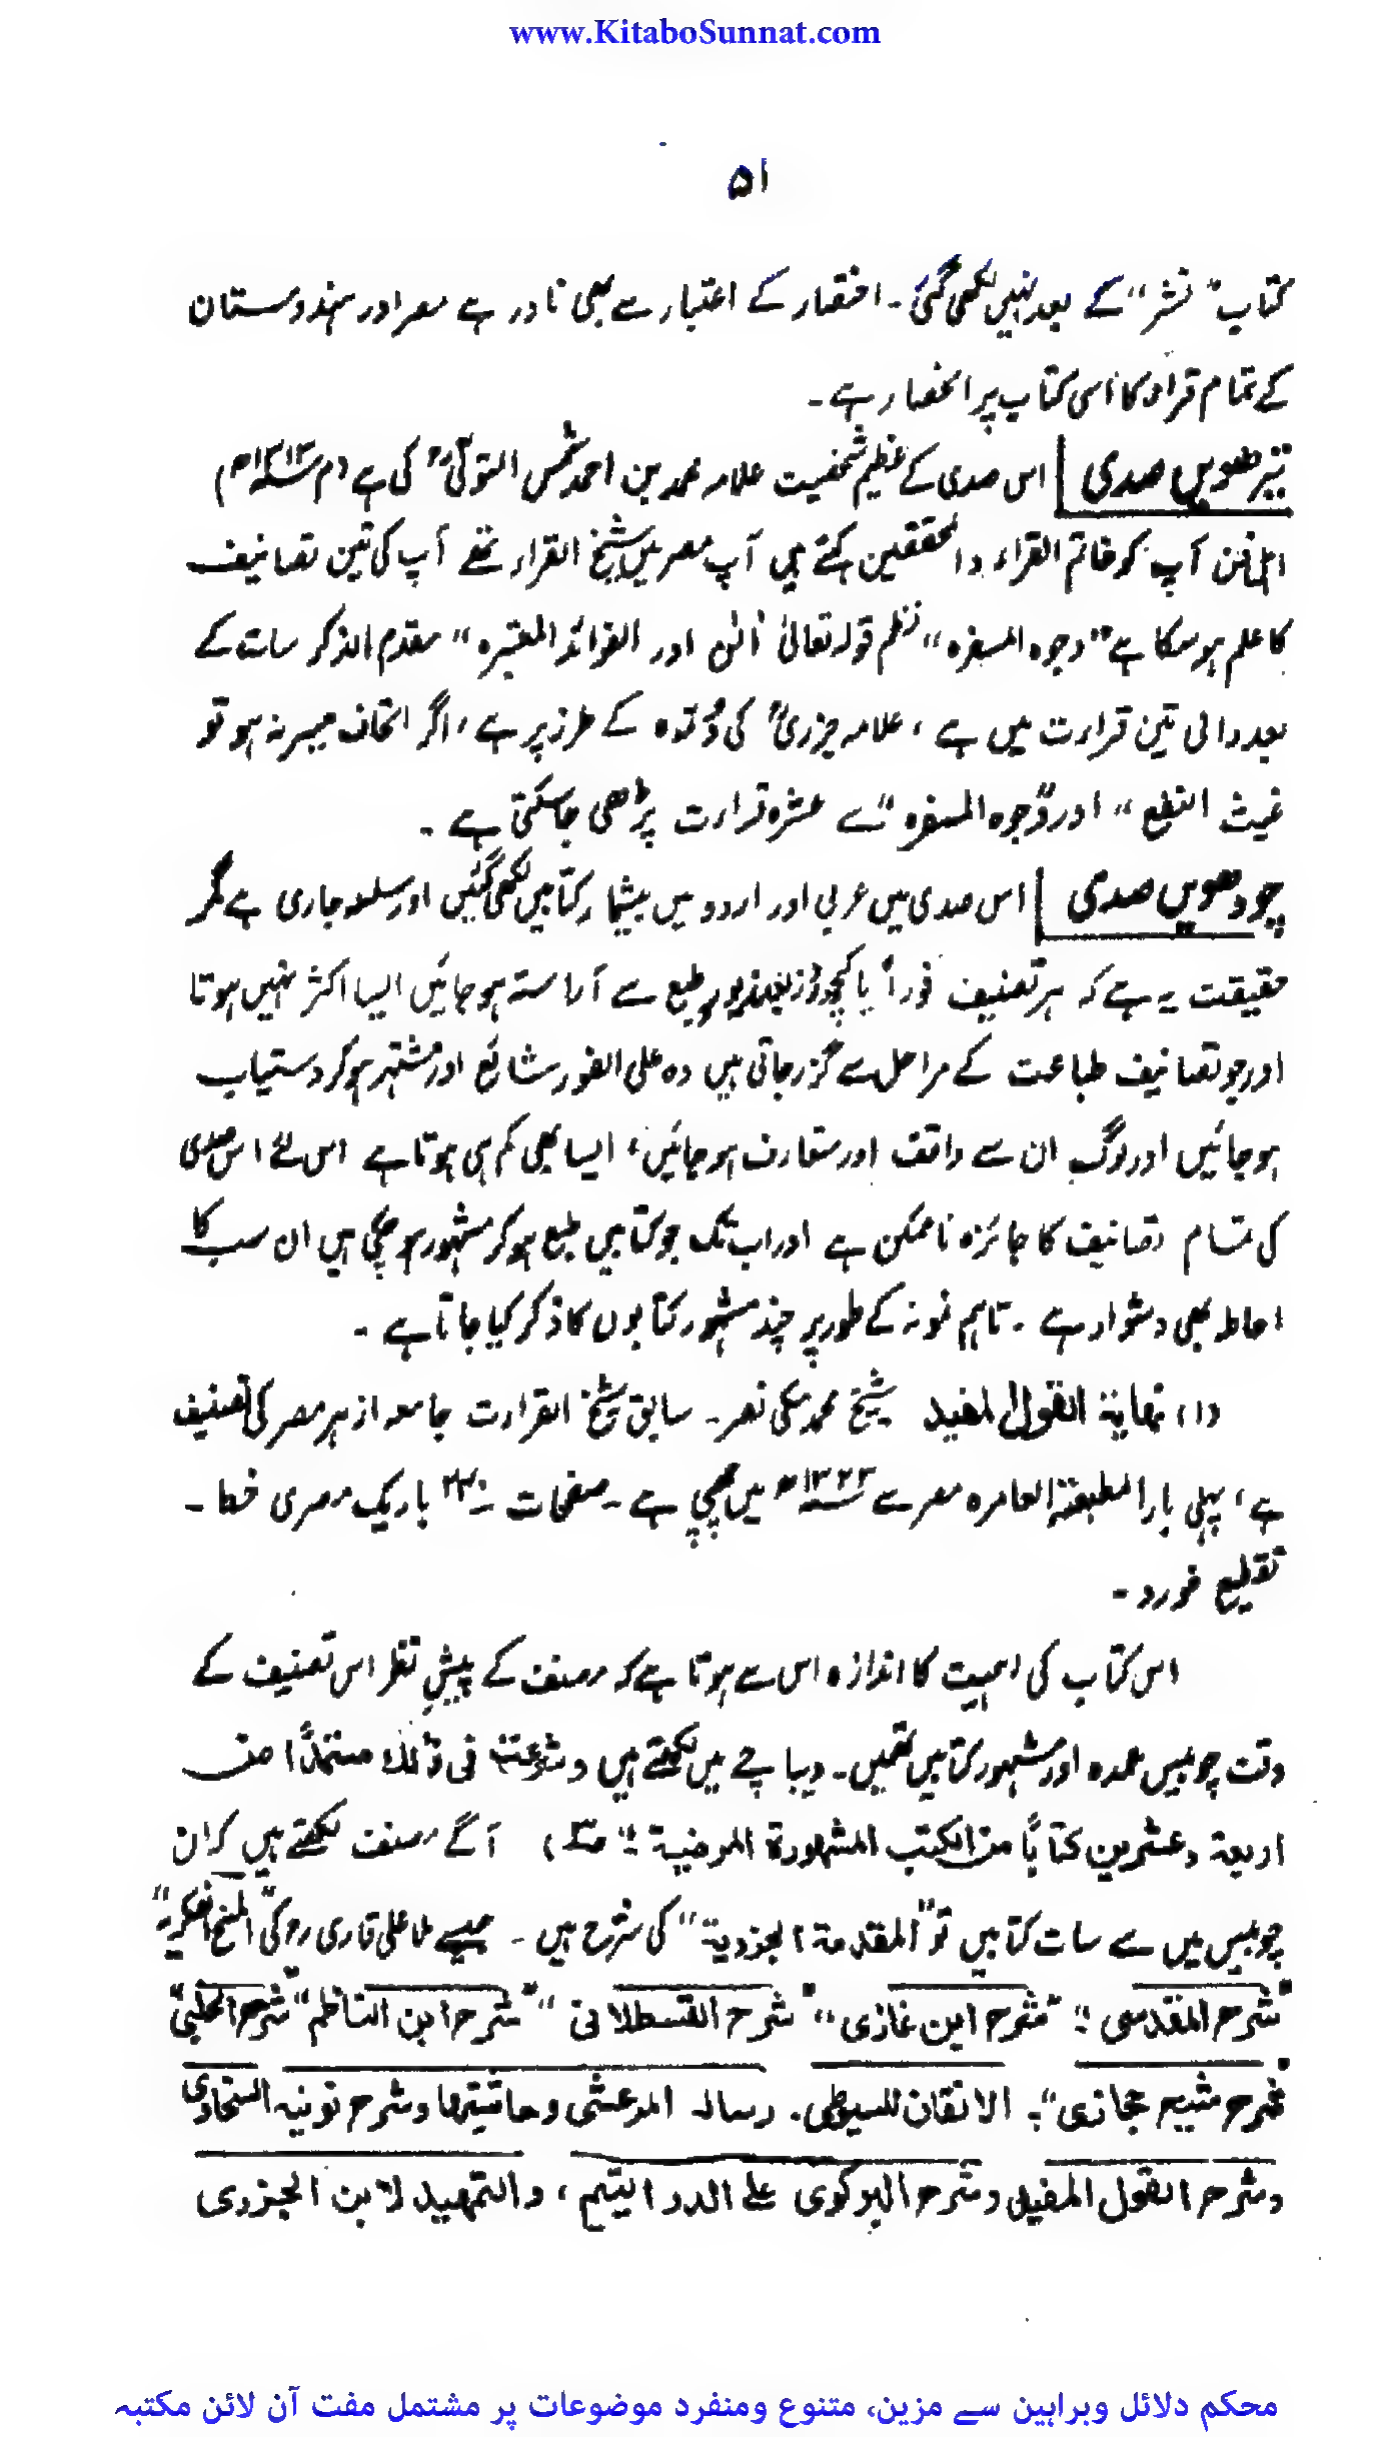 www.KitaboSunnat.com
۵۱
کتاب "نشر" کے بعد نہیں لکھی گئی۔ اختصار کے اعتبار سے بھی نادر ہے مصر اور ہندوستان
کے تمام قراء کا اسی کتاب پر انحصار ہے۔
تیرھویں صدی اس صدی کے عظیم شخصیت علامہ محمد بن احمد شمس المتولیؒ کی ہے (م ۱۳۱۳ھ)
اہل فن آپ کو خاتم القراء والمحققین کہتے ہیں آپ مصر میں شیخ القراء تھے آپ کی تین تصانیف
کا علم ہو سکا ہے "وجوہ المسفرہ" نظم قولہ تعالیٰ اٰلئٰن اور الفوائد المعتبرہ" مقدم الذکر سات کے
بعد والی تین قراءت میں ہے، علامہ جزریؒ کی دُرّہ کے طرز پر ہے، اگر اتحاف میسر نہ ہو تو
غیث النفع" اور "وجوہ المسفرہ" سے عشرہ قراءت پڑھی جا سکتی ہے۔
چودھویں صدی اس صدی میں عربی اور اردو میں بیشمار کتابیں لکھی گئیں اور سلسلہ جاری ہے مگر
حقیقت یہ ہے کہ ہر تصنیف فوراً یا کچھ روز بعد زیور طبع سے آراستہ ہو جائیں ایسا اکثر نہیں ہوتا
اور جو تصانیف طباعت کے مراحل سے گزر جاتی ہیں وہ علی الفور شائع اور مشتہر ہو کر دستیاب
ہو جائیں اور لوگ ان سے واقف اور متعارف ہو جائیں، ایسا بھی کم ہی ہوتا ہے اس لئے اس صدی
کی تمام تصانیف کا جائزہ ناممکن ہے اور اب تک جو کتابیں طبع ہو کر مشہور ہو چکی ہیں ان سب کا
احاطہ بھی دشوار ہے۔ تاہم نمونہ کے طور پر چند مشہور کتابوں کا ذکر کیا جاتا ہے۔
(۱) نہایۃ القول المفید شیخ محمد مکی نصر۔ سابق شیخ القراءت جامعہ ازہر مصر کی تصنیف
ہے، پہلی بار المطبعۃ العامرہ مصر سے ۱۳۲۳ھ میں چھپی ہے۔ صفحات باریک مصری خط۔
تقطیع خورد۔
اس کتاب کی اہمیت کا اندازہ اس سے ہوتا ہے کہ مصنف کے پیشِ نظر اس تصنیف کے
وقت چوبیس عمدہ اور مشہور کتابیں تھیں۔ دیباچے میں لکھتے ہیں وشرعت فی ذٰلک مستمدًا من
اربعۃ وعشرین کتابًا من الکتب المشہورۃ المرضیۃ" آگے مصنف لکھتے ہیں کہ ان
چوبیس میں سے سات کتابیں تو "المقدمۃ الجزریۃ" کی شرح ہیں۔ جیسے ملا علی قاری رح کی "المنح الفکریہ"
"شرح المقدسی" "شرح ابن غازی" "شرح القسطلانی" "شرح ابن الناظم" "شرح الحلبی"
شرح شیخ حجازی"۔ الاتقان للسیوطی۔ رسالہ المرعشی وحاشیتہا وشرح نونیہ السخاوی
وشرح القول المفید وشرح البرکوی علی الدر الیتیم، والتمہید لابن الجزری
محکم دلائل وبراہین سے مزین، متنوع ومنفرد موضوعات پر مشتمل مفت آن لائن مکتبہ